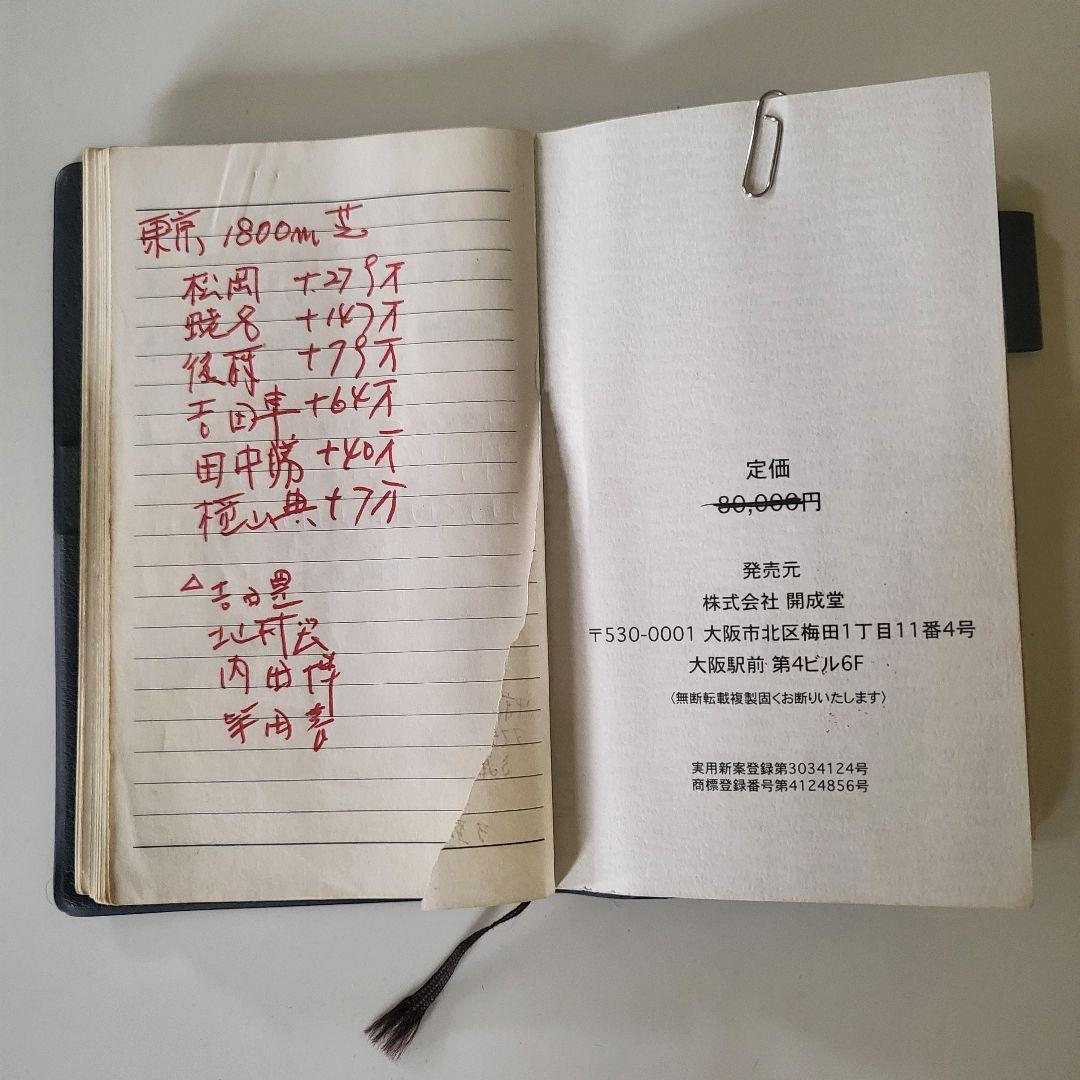 東京 1800m 芝
松岡 +279万
蛯名 +147万
後藤 +79万
吉田隼 +64万
田中勝 +40万
横山典 +7万
△吉田豊
北村宏
内田博
柴田善
定価
80,000円
発売元
株式会社 開成堂
〒530-0001 大阪市北区梅田1丁目11番4号
大阪駅前 第4ビル6F
〈無断転載複製固くお断りいたします〉
実用新案登録第3034124号
商標登録番号第4124856号